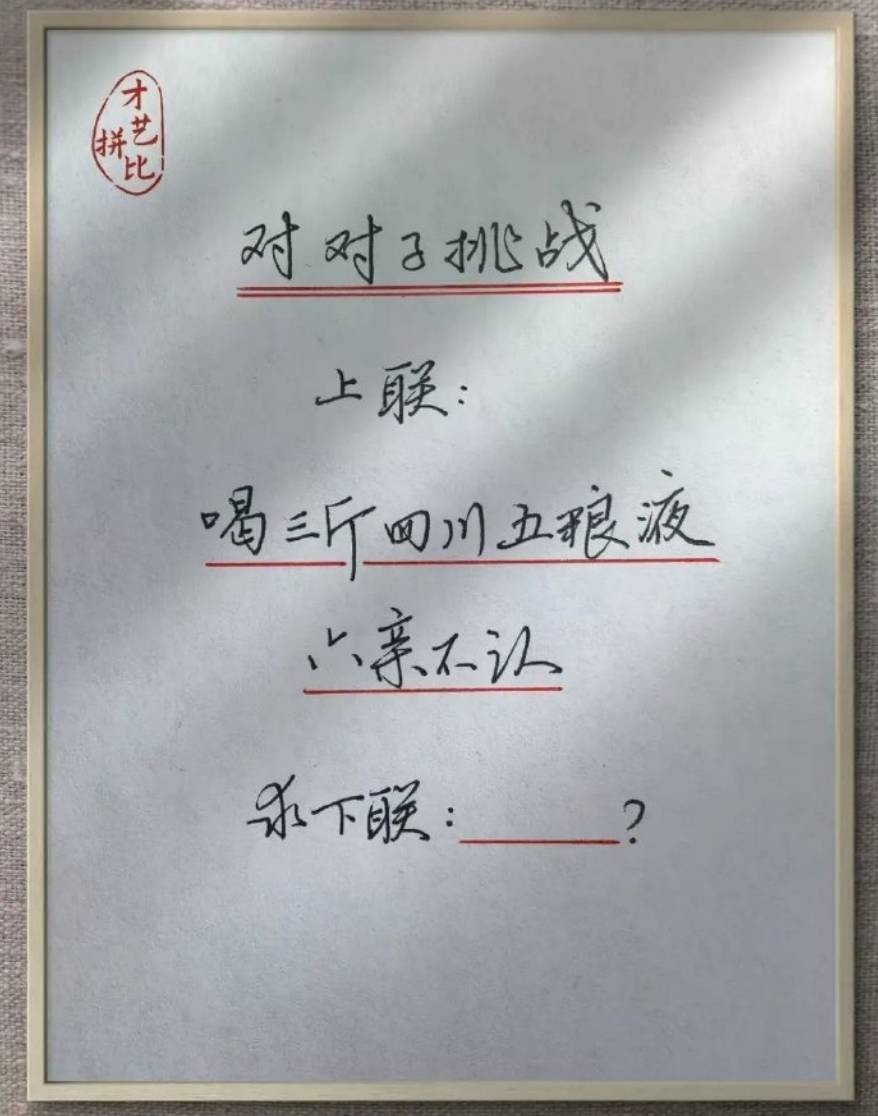 才艺比拼
对对子挑战
上联：
喝三斤四川五粮液
六亲不认
求下联：______？